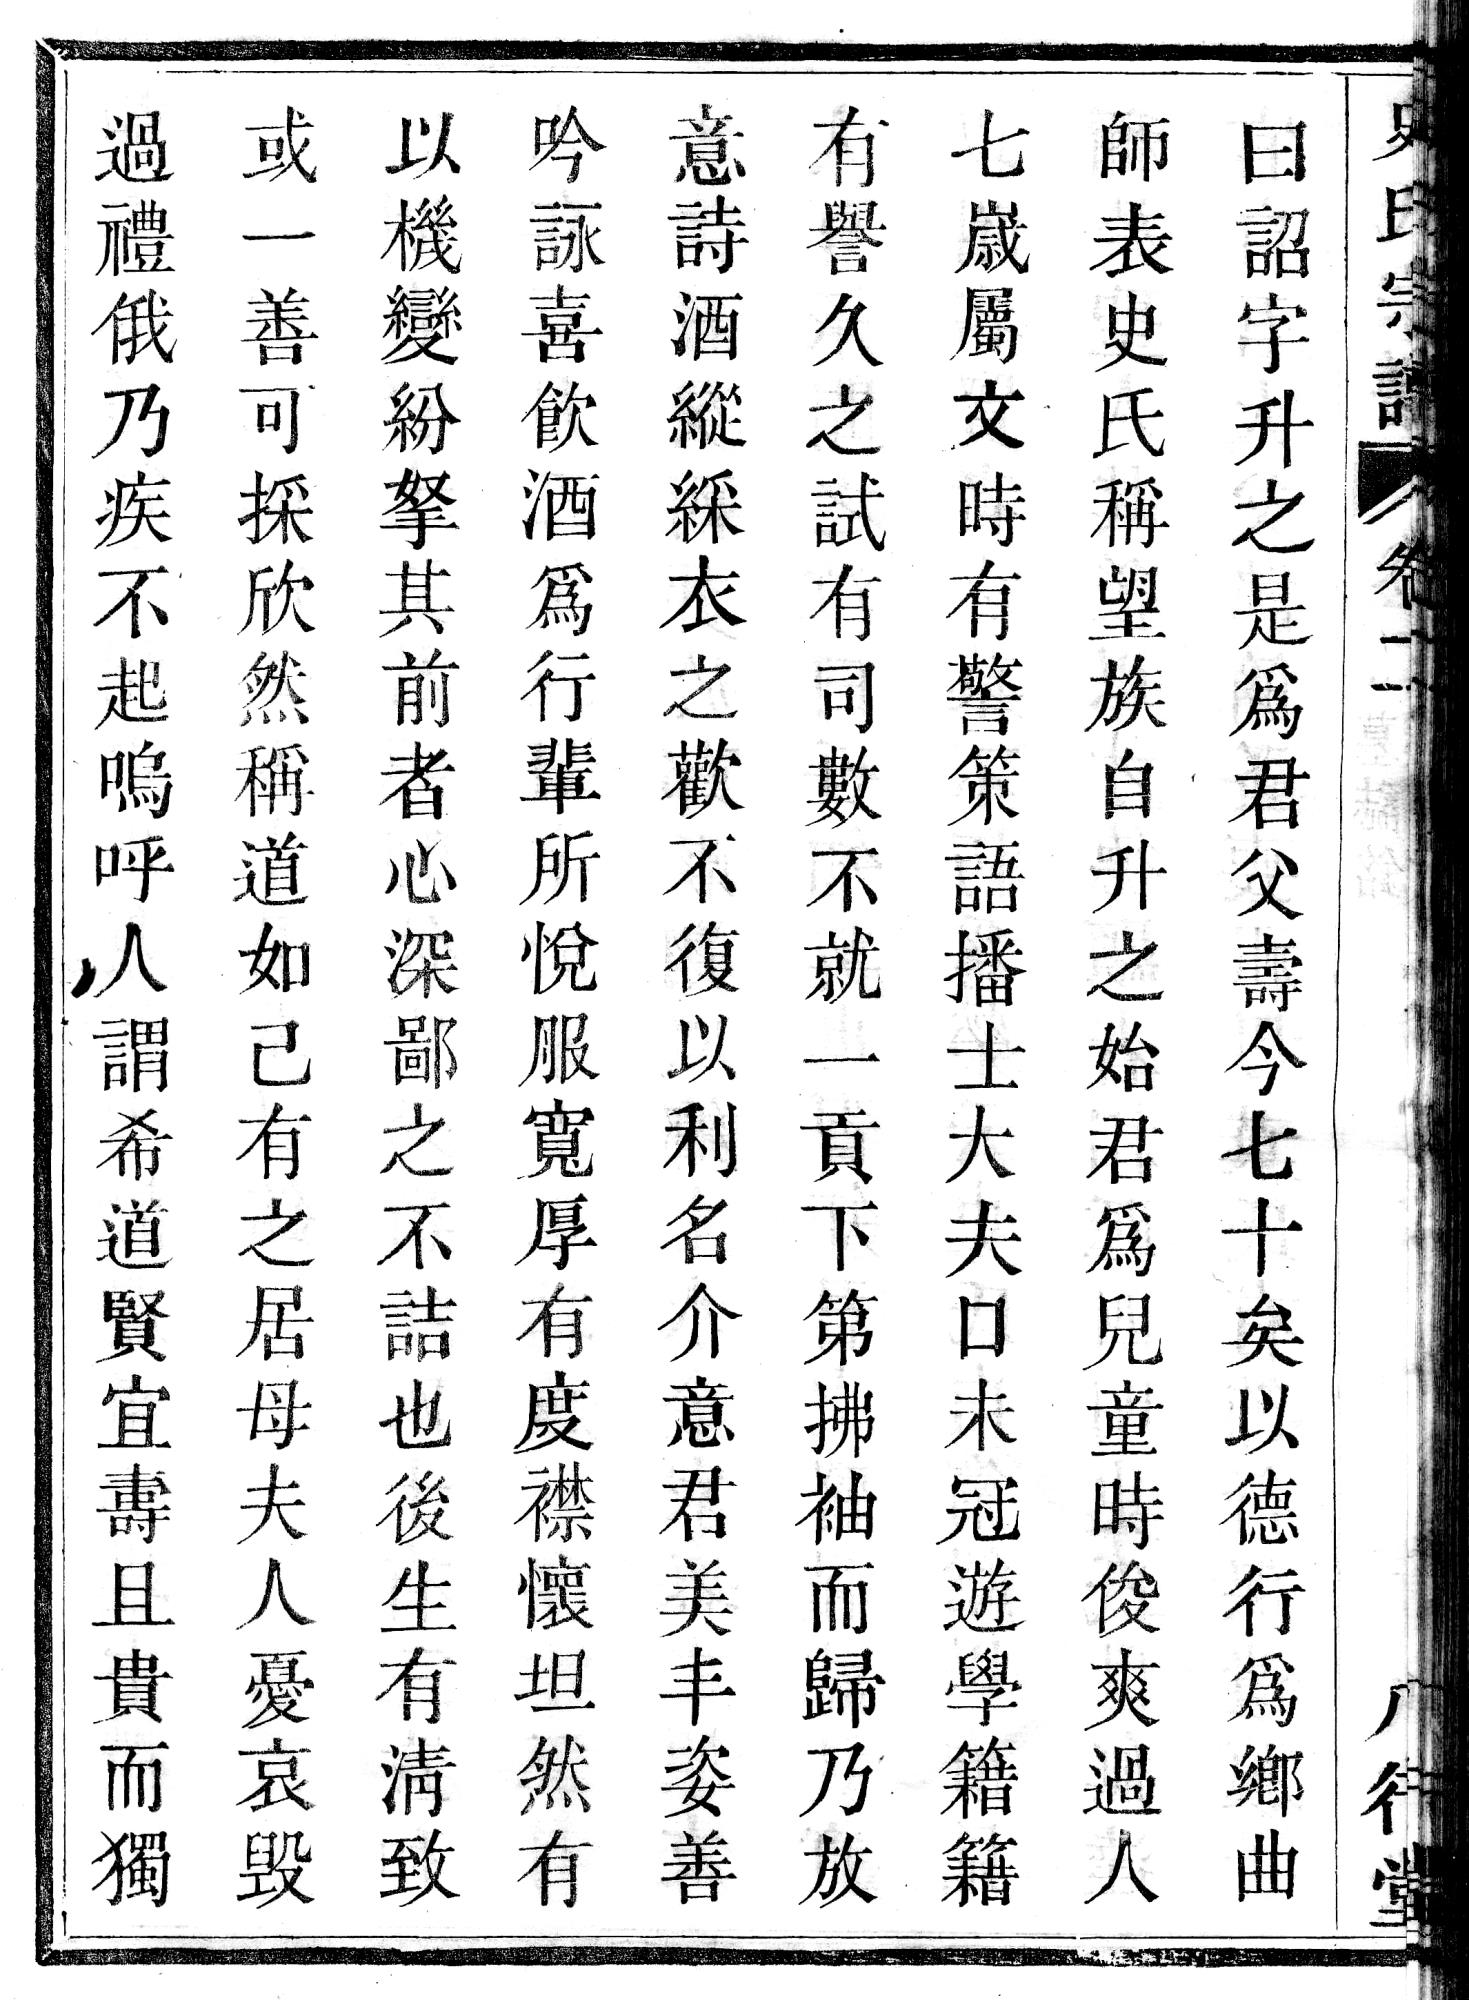 史氏宗譜 卷二 八行堂
曰詔字升之是爲君父壽今七十矣以德行爲鄉曲
師表史氏稱望族自升之始君爲兒童時俊爽過人
七歲屬文時有警策語播士大夫口未冠遊學籍籍
有譽久之試有司數不就一貢下第拂袖而歸乃放
意詩酒縱綵衣之歡不復以利名介意君美丰姿善
吟詠喜飲酒爲行輩所悅服寬厚有度襟懷坦然有
以機變紛拏其前者心深鄙之不詰也後生有淸致
或一善可採欣然稱道如己有之居母夫人憂哀毀
過禮俄乃疾不起嗚呼人謂希道賢宜壽且貴而獨